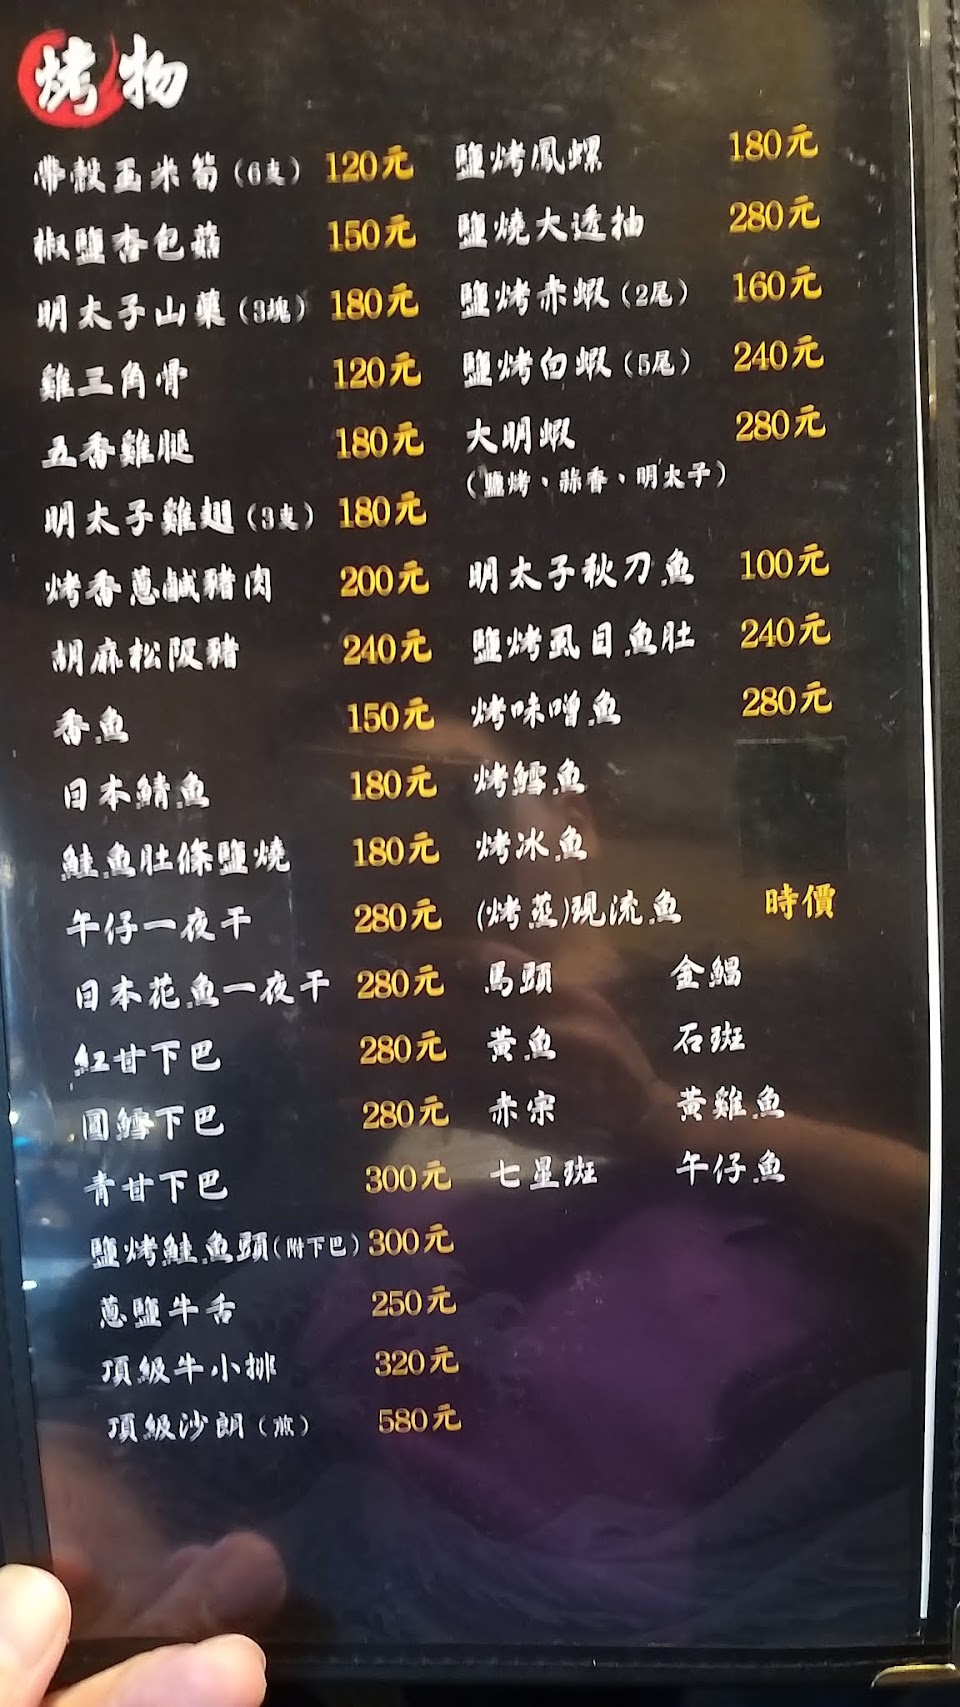 烤物
帶殼玉米筍(6支) 120元
椒鹽杏包菇 150元
明太子山藥(3塊) 180元
雞三角骨 120元
五香雞腿 180元
明太子雞翅(3支) 180元
烤香蔥鹹豬肉 200元
胡麻松阪豬 240元
香魚 150元
日本鯖魚 180元
鮭魚肚條鹽燒 180元
午仔一夜干 280元
日本花魚一夜干 280元
紅甘下巴 280元
圓鱈下巴 280元
青甘下巴 300元
鹽烤鮭魚頭(附下巴) 300元
蔥鹽牛舌 250元
頂級牛小排 320元
頂級沙朗(煎) 580元
鹽烤鳳螺 180元
鹽燒大透抽 280元
鹽烤赤蝦(2尾) 160元
鹽烤白蝦(5尾) 240元
大明蝦 280元
(鹽烤、蒜香、明太子)
明太子秋刀魚 100元
鹽烤虱目魚肚 240元
烤味噌魚 280元
烤鱈魚
烤冰魚
(烤蒸)現流魚 時價
馬頭 金鯧
黃魚 石斑
赤宗 黃雞魚
七星斑 午仔魚